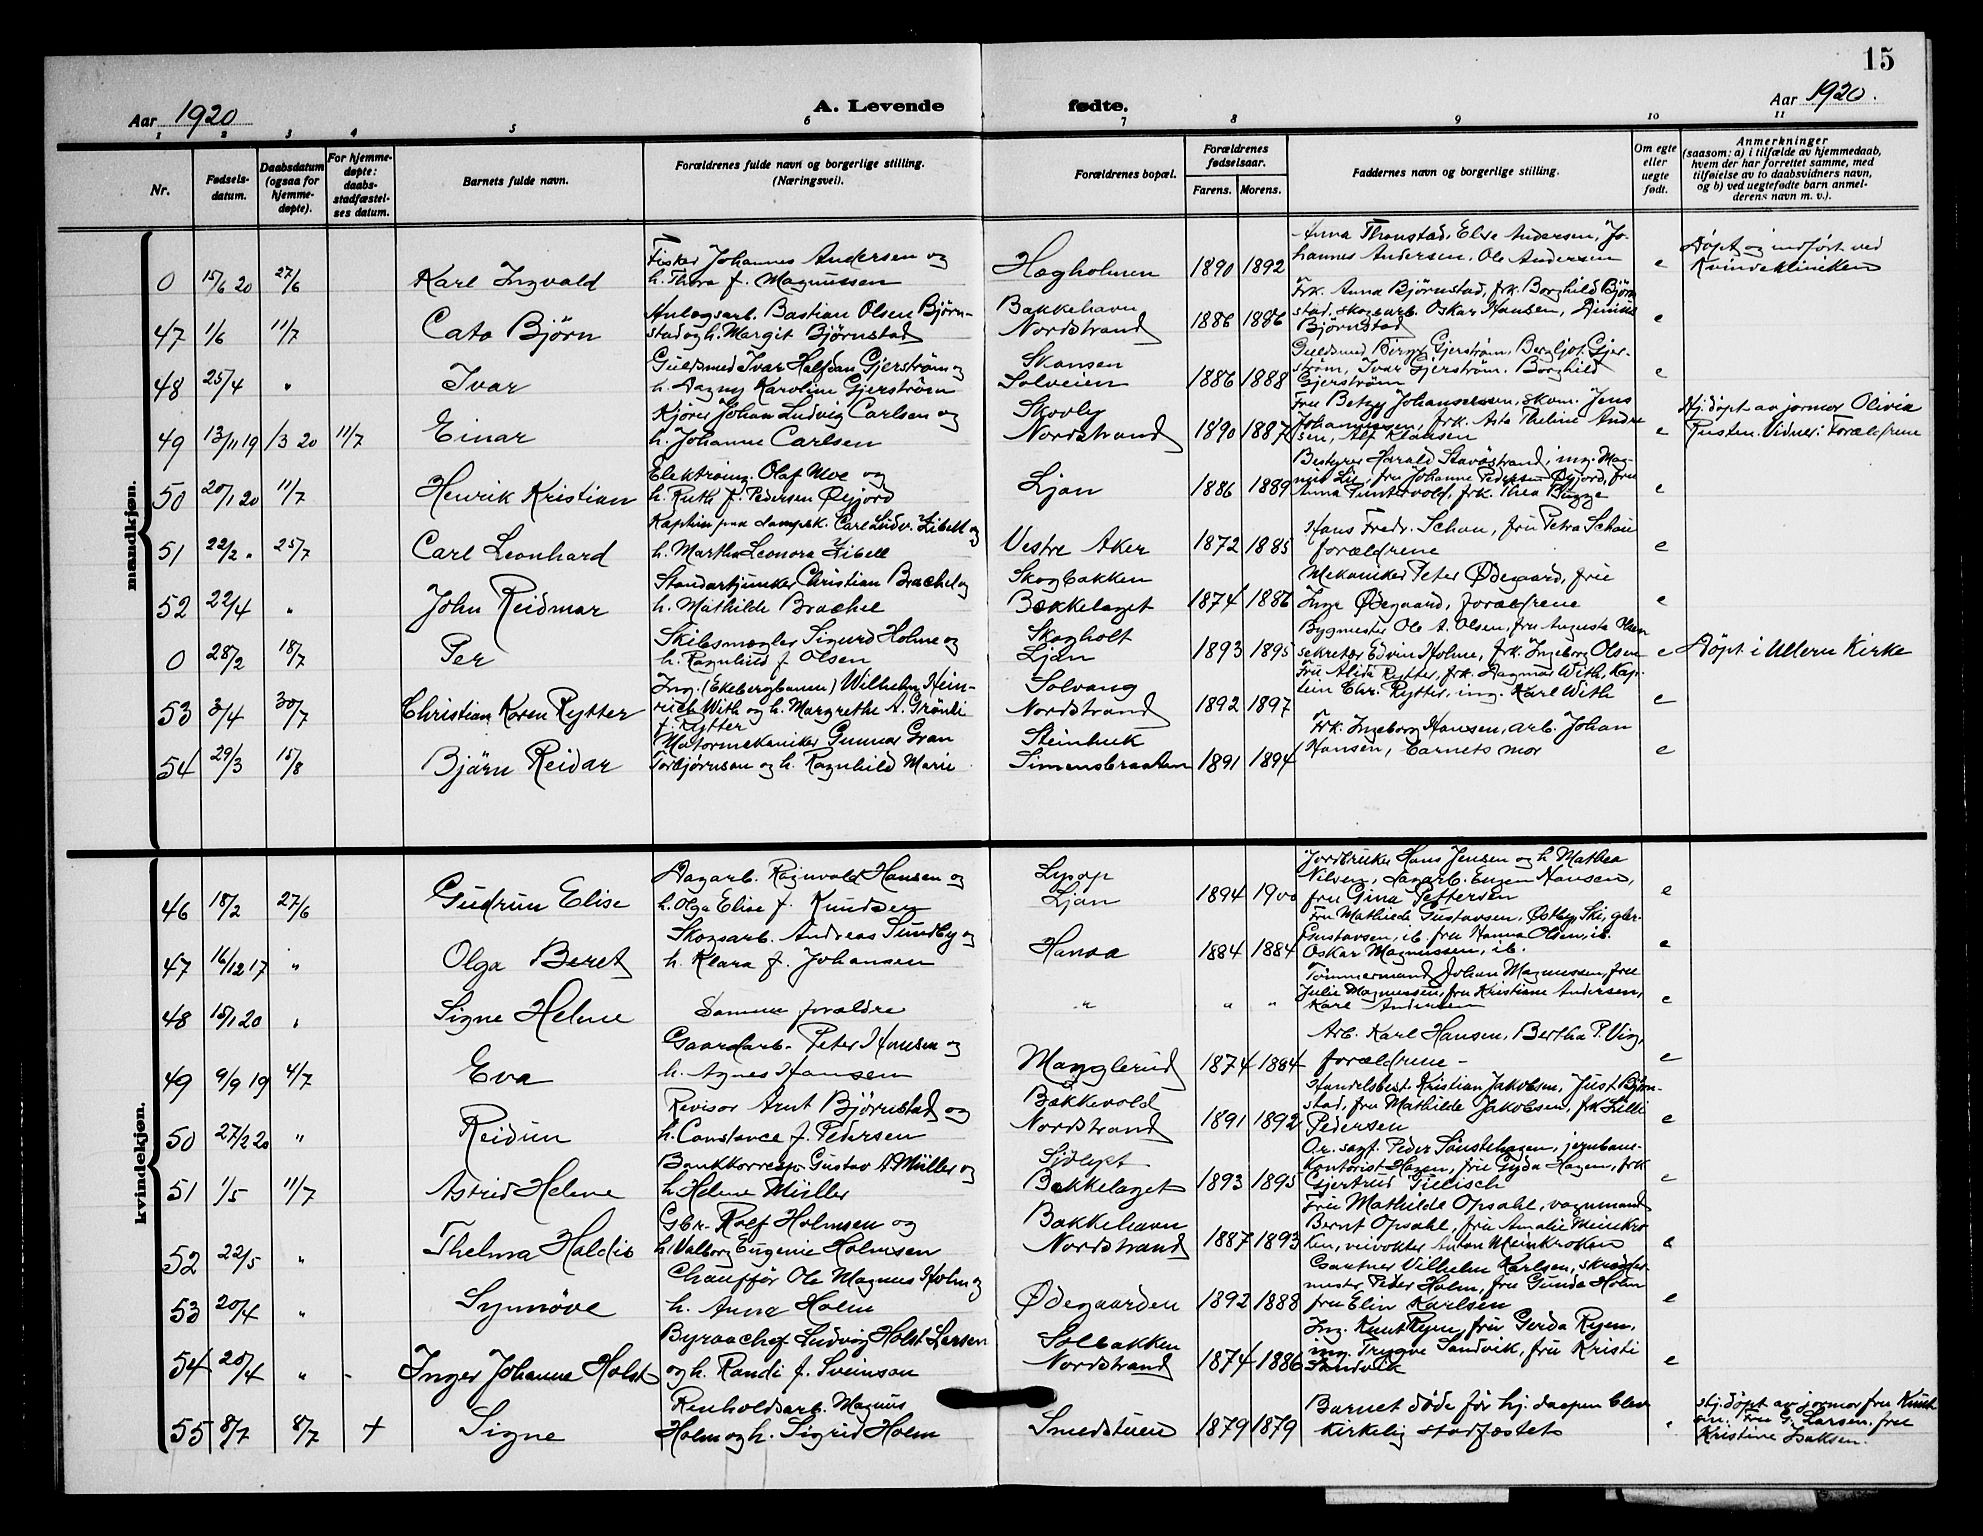 15
Aar 1920 A. Levende fødte. Aar 1920.
1 2 3 4 5 6 7 8 9 10 11
Nr.
Fødsels-
datum.
Daabsdatum
(ogsaa for
hjemme-
døpte).
For hjemme-
døpte:
daabs-
stadfæstel-
ses datum.
Barnets fulde navn.
Forældrenes fulde navn og borgerlige stilling.
(Næringsvei).
Forældrenes bopæl.
Forældrenes
fødselsaar.
Farens. Morens.
Faddernes navn og borgerlige stilling.
Om egte
eller
uegte
født.
Anmerkninger
(saasom: a) i tilfælde av hjemmedaab,
hvem der har forrettet samme, med
tilføielse av to daabsvidners navn,
og b) ved uegtefødte barn anmel-
derens navn m. v.).
mandkjøn.
0 15/6 20 27/6 Karl Ingvald
Fisker Johannes Andersen og
h. Thora f. Magnussen
Hægholmen 1890 1892
Anna Thronstad, Elise Andersen, Jo-
hannes Andersen, Ole Andersen
e
Døpt og indført ved
Kvindekliniken
47 1/6 11/7 Cato Björn
Anlægsarb. Bastian Olsen Björn-
stad og h. Margit Bjørnstad
Bakkehavn
Nordstrand
1886 1886
Frk. Anna Bjørnstad, frk. Borghild Bjørn
stad, skogsarb. Oskar Hansen,
Björnstad
e
48 25/4 " Ivar
Guldsmed Ivar Halfdan Gjerstrøm og
h. Dagny Karoline Gjerstrøm
Skansen
Solveien
1886 1888
Guldsmed Birger Gjerstrøm, Bergljot Gjer-
strøm, Ivar Gjerstrøm, Borghild
Gjerstrøm
e
49 13/11 19 /3 20 11/7 Einar
Kjører Johan Ludvig Carlsen og
h. Johanne Carlsen
Skovly
Nordstrand
1890 1887
Fru Betzy Johannessen, skom. Jens
Johannessen, frk. Asta Theline Andre
sen, Alf Klausen
e
Hj.døpt av jormor Olivia
Rusten. Vidner: Forældrene
50 20/1 20 11/7 Henrik Kristian
Elektroing. Olaf Moe og
h. Ruth f. Pedersen Øijord
Ljan 1886 1889
Bestyrer Harald Stavöstrand, ing. Mag-
nus Lie, fru Johanne Pedersen Øyjord, fru
Anna Tuntervold, frk. Thea Bugge
e
51 22/2 " 25/7 Carl Leonhard
Kaptein paa dampsk. Carl Ludv. Zibell og
h. Martha Leonora Zibell
Vestre Aker 1872 1885
Hans Fredr. Schou, fru Petra Schou
forældrene
e
52 22/4 " John Reidmar
Standartjunker Christian Brachel og
h. Mathilde Brachel
Skogbakken
Bækkelaget
1874 1886
Mekaniker Peter Ødegaard, frue
Inga Ødegaard, forældrene
e
0 28/2 18/7 Per
Skibsmægler Sigurd Holme og
h. Ragnhild f. Olsen
Skogholt
Ljan
1893 1895
Bygmester Ole A. Olsen, fru Augusta Olsen
sekretær Edvin Holme, frk. Ingeborg Olsen
e
Døpt i Ullern Kirke
53 3/4 30/7 Christian Koren Rytter
Ing. (Ekebergbanen) Wilhelm Hein-
rich With og h. Margrethe A. Grønli
f. Rytter
Solvang
Nordstrand
1892 1897
Fru Alida Rytter, frk. Dagmar With, Kap-
tein Chr. Rytter, ing. Karl With
e
54 29/3 15/8 Björn Reidar
Motormekaniker Gunnar Gran
Torbjørnsen og h. Ragnhild Marie
Steinbuk
Simensbraaten
1891 1894
Frk. Ingeborg Hansen, arb. Johan
Hansen, barnets mor
e
kvindekjøn.
46 18/2 27/6 Gudrun Elise
Dagarb. Ragnvald Hansen og
h. Olga Elise f. Knudsen
Lysop
Ljan
1894 1900
Jordbruker Hans Jensen og h. Mathea
Nilsen, dagarb. Eugen Hansen,
fru Gina Pettersen
e
47 16/12 17 " Olga Beret
Skogsarb. Andreas Sundby og
h. Klara f. Johansen
Hansa 1884 1884
Fru Mathilde Gustavsen, Østby, Ski, gler-
Gustavsen, ib. fru Hanna Olsen, ib.
Oskar Magnussen, ib.
e
48 15/1 20 " Signe Helene
Samme forældre
" " "
Tømmermand Johan Magnussen, frue
Julie Magnussen, fru Kristiane Andersen,
Karl Andersen
e
49 9/9 19 4/7 Eva
Gaardarb. Peter Hansen og
h. Agnes Hansen
Manglerud 1874 1884
Arb. Karl Hansen, Bertha P. Vig,
forældrene -
e
50 27/2 20 " Reidun
Revisor Arnt Bjørnstad og
h. Constance f. Pedersen
Bækkevold
Nordstrand
1891 1892
Handelsbest. Kristian Jakobsen, Just Bjørn-
stad, fru Mathilde Jakobsen, frk. Lilli
Pedersen
e
51 1/5 11/7 Astrid Helene
Bankkorresp. Gustav A Müller og
h. Helene Müller
Bækkelaget
1893 1895
O.r. sagf. Peder Sønstehagen, jernbane-
kontorist Hagen, fru Gyda Hagen, frk
Gjertrud Gulisch
e
52 22/5 " Thelma Haldis
Gbr. Rolf Holmsen og
h. Valborg Eugenie Holmsen
Bakkehavn
Nordstrand
1887 1893
Fru Mathilde Opsahl, vognmand
Bernt Opsahl, fru Amalie Meinkro-
ken, veivokter Anton Meinkroken
e
53 20/4 " Synnöve
Chauffør Ole Magnus Holm og
h. Anna Holm
Ødegaarden 1892 1888
Gartner Vilhelm Karlsen, skrædder-
mester Peder Holm, fru Gunda Holm
fru Elin Karlsen
e
54 20/4 " - Inger Johanne Holst
Byraachef Ludvig Holst Larsen
og h. Randi f. Sveinson
Solbakken
Nordstrand
1874 1886
Ing. Knut Ryen, fru Gerda Ryen,
ing. Trygve Sandvik, fru Kristi
Sandvik
e
55 8/7 8/7 + Signe
Renholdsarb. Magnus
Holm og h. Sigrid Holm
Smedstuen 1879 1879
Barnet döde før hj. daapen blev
kirkelig stadfæstet
Hj.døpt av jormor fru Knut
sen. Fru G. Larsen, fru
Kristine Isaksen.